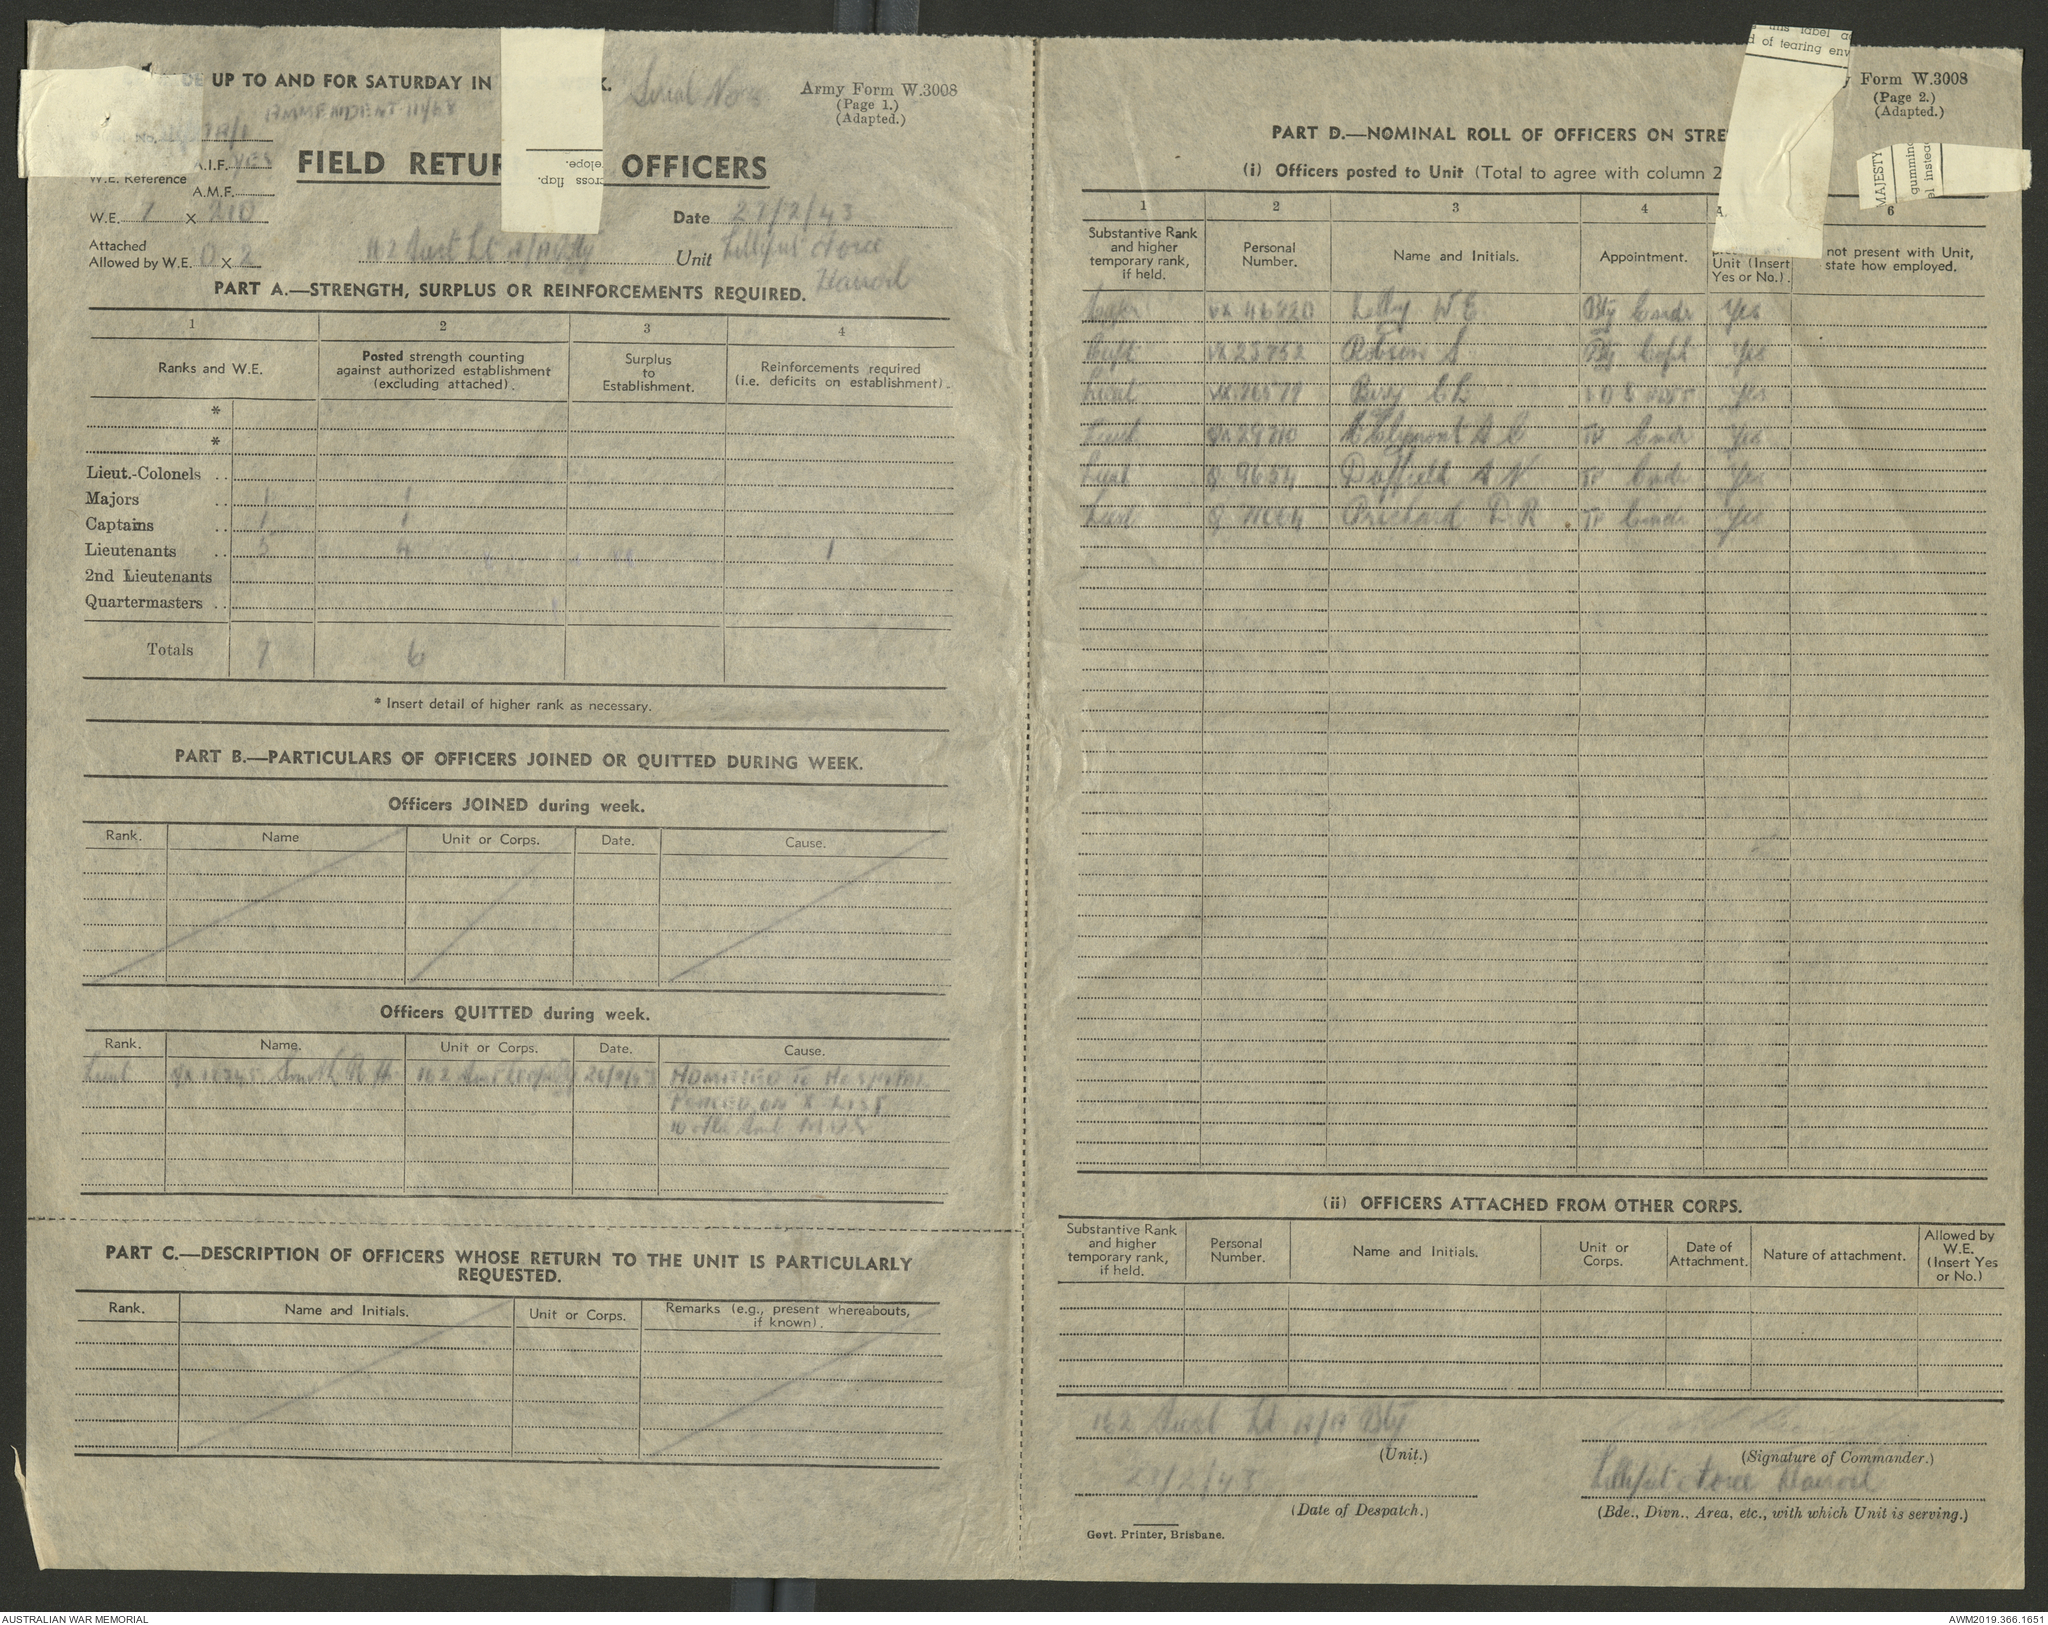 UP TO AND FOR SATURDAY IN K.
Serial No
Army Form W.3008
(Page 1.)
(Adapted.)
AMMENDMENT 111/68
A.I.F. YES
W.E. Reference
A.M.F.
FIELD RETUR OFFICERS
elope.
cross flap.
W.E. 7 X 210
Date 27/2/43
Attached
Allowed by W.E. 0 X 2
162 Aust Lt A/A Bty Unit Lilliput Force
Hanoil
PART A.—STRENGTH, SURPLUS OR REINFORCEMENTS REQUIRED.
1 2 3 4
Ranks and W.E.
Posted strength counting
against authorized establishment
(excluding attached).
Surplus
to
Establishment.
Reinforcements required
(i.e. deficits on establishment).
*
*
Lieut.-Colonels ..
Majors .. 1 1
Captains .. 1 1
Lieutenants .. 5 4 1
2nd Lieutenants
Quartermasters ..
Totals 7 6
* Insert detail of higher rank as necessary.
PART B.—PARTICULARS OF OFFICERS JOINED OR QUITTED DURING WEEK.
Officers JOINED during week.
Rank. Name Unit or Corps. Date. Cause.
Officers QUITTED during week.
Rank. Name. Unit or Corps. Date. Cause.
Lieut Smith R 162 Aust Lt A/A Bty ADMITTED TO HOSPITAL
PLACED ON X LIST
PART C.—DESCRIPTION OF OFFICERS WHOSE RETURN TO THE UNIT IS PARTICULARLY
REQUESTED.
Rank. Name and Initials. Unit or Corps. Remarks (e.g., present whereabouts,
if known).
this label
d of tearing env
MAJESTY
gummin
el instea
y Form W.3008
(Page 2.)
(Adapted.)
PART D.—NOMINAL ROLL OF OFFICERS ON STRE
(i) Officers posted to Unit (Total to agree with column 2
1 2 3 4 6
Substantive Rank
and higher
temporary rank,
if held.
Personal
Number.
Name and Initials.
Appointment.
Unit (Insert
Yes or No.).
not present with Unit,
state how employed.
Major W E Bty Comdr Yes
Capt VX 28752 Robson A Bty Capt Yes
Lieut C L Yes
Lieut A C Tp Comdr Yes
Lieut Q 9654 Duffield A N Tp Comdr Yes
Lieut Prichard D R Tp Comdr Yes
(ii) OFFICERS ATTACHED FROM OTHER CORPS.
Substantive Rank
and higher
temporary rank,
if held.
Personal
Number.
Name and Initials.
Unit or
Corps.
Date of
Attachment.
Nature of attachment.
Allowed by
W.E.
(Insert Yes
or No.)
162 Aust Lt A/A Bty
(Unit.)
(Signature of Commander.)
27/2/43
Lilliput Force Hanoil
(Date of Despatch.)
(Bde., Divn., Area, etc., with which Unit is serving.)
Govt. Printer, Brisbane.
AUSTRALIAN WAR MEMORIAL
AWM2019.366.1651